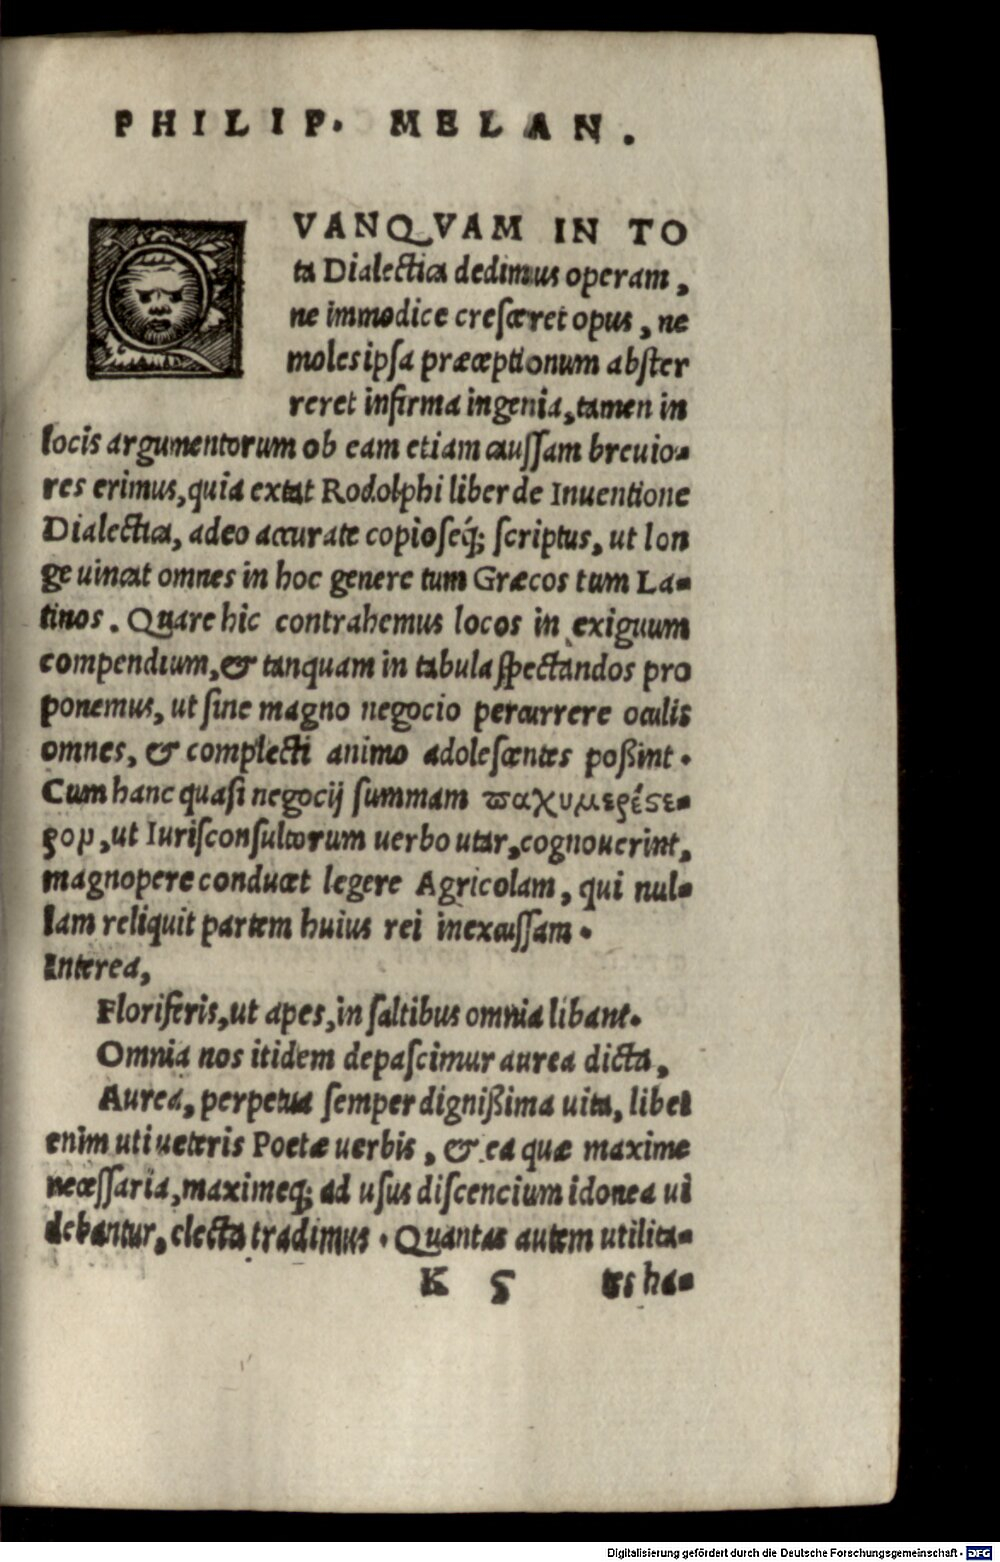 PHILIP. MELAN.
QVANQVAM IN TO
ta Dialectica dedimus operam,
ne immodice cresceret opus, ne
moles ipsa præceptionum abster
reret infirma ingenia, tamen in
locis argumentorum ob eam etiam caussam breuio-
res erimus, quia extat Rodolphi liber de Inuentione
Dialectica, adeo accurate copioseq́; scriptus, ut lon
ge uincat omnes in hoc genere tum Græcos tum La-
tinos. Quare hic contrahemus locos in exiguum
compendium, & tanquam in tabula spectandos pro
ponemus, ut sine magno negocio percurrere oculis
omnes, & complecti animo adolescentes poßint.
Cum hanc quasi negocij summam παχυμερέστε-
ρον, ut Iurisconsultorum uerbo utar, cognouerint,
magnopere conducet legere Agricolam, qui nul-
lam reliquit partem huius rei inexcussam.
Interea,
Floriferis, ut apes, in saltibus omnia libant.
Omnia nos itidem depascimur aurea dicta,
Aurea, perpetua semper dignißima uita, libet
enim uti ueteris Poetæ uerbis, & ea quæ maxime
necessaria, maximeq; ad usus discencium idonea ui
debantur, electa tradimus. Quantas autem utilita-
K 5 tes ha-
Digitalisierung gefördert durch die Deutsche Forschungsgemeinschaft - DFG